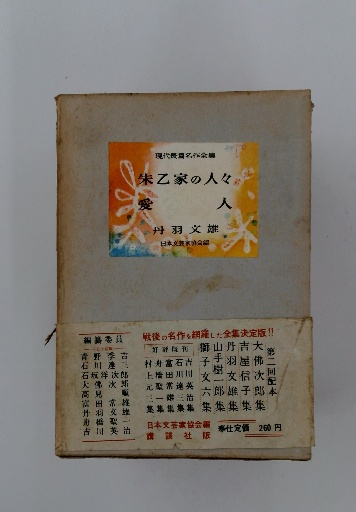 現代長篇名作全集
朱乙家の人々
愛人
丹羽文雄
日本文芸家協会編
戦後の名作を網羅した全集決定版!!
第二回配本
大佛次郎集
吉屋信子集
丹羽文雄集
山手樹一郎集
獅子文六集
好評既刊
吉川英治集
石川達三集
富田常雄集
舟橋聖一集
村上元三集
日本文芸家協会編
講談社版
奉仕定価 260円
編纂委員
青野季吉
石川達三
石坂洋次郎
大佛次郎
高見順
富田常雄
丹羽文雄
舟橋聖一
吉川英治